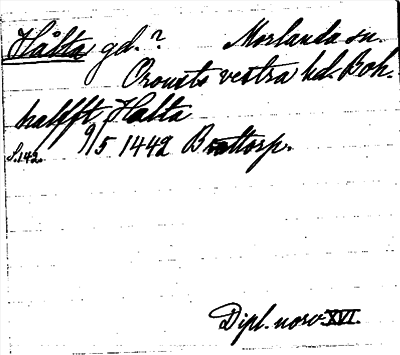 Hålta gd.? Morlanda sn.
Orousts vestra hd. Boh.
hallfft Halta
S.142. 9/5 1442 Brattorp.
Dipl. norv. XVI.